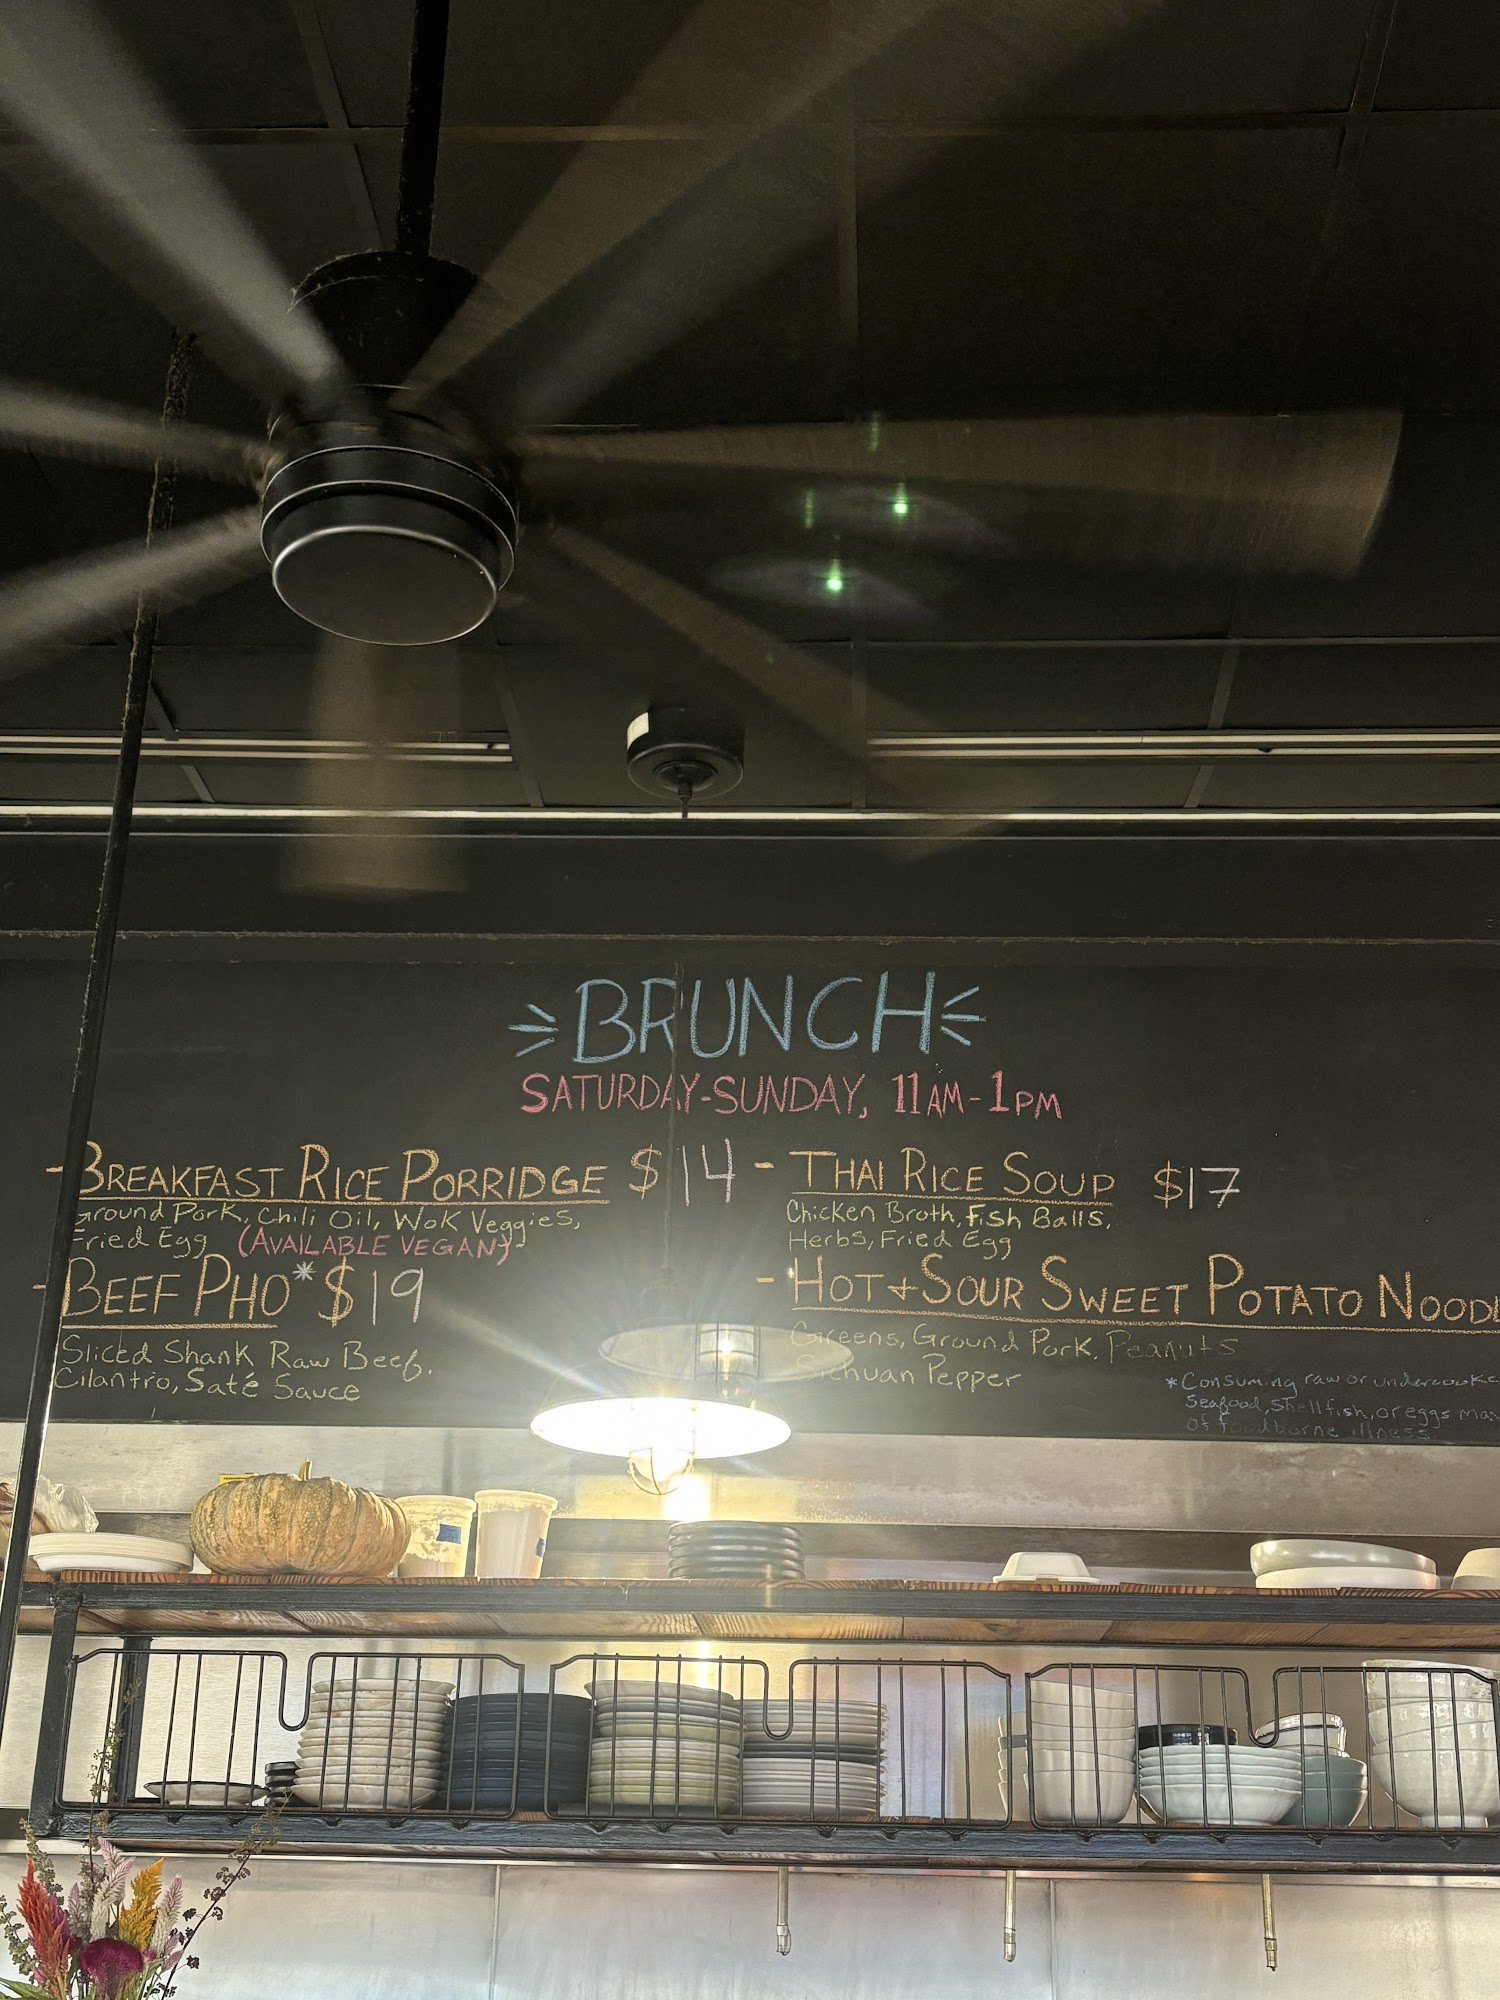 BRUNCH
SATURDAY-SUNDAY, 11AM-1PM
- BREAKFAST RICE PORRIDGE $14
Ground Pork, Chili Oil, Wok Veggies,
Fried Egg (AVAILABLE VEGAN)
- BEEF PHO* $19
Sliced Shank Raw Beef,
Cilantro, Saté Sauce
- THAI RICE SOUP $17
Chicken Broth, Fish Balls,
Herbs, Fried Egg
- HOT + SOUR SWEET POTATO NOODL
Greens, Ground Pork, Peanuts
Sichuan Pepper
*Consuming raw or undercooke
Seafood, shellfish, or eggs may
of foodborne illness.